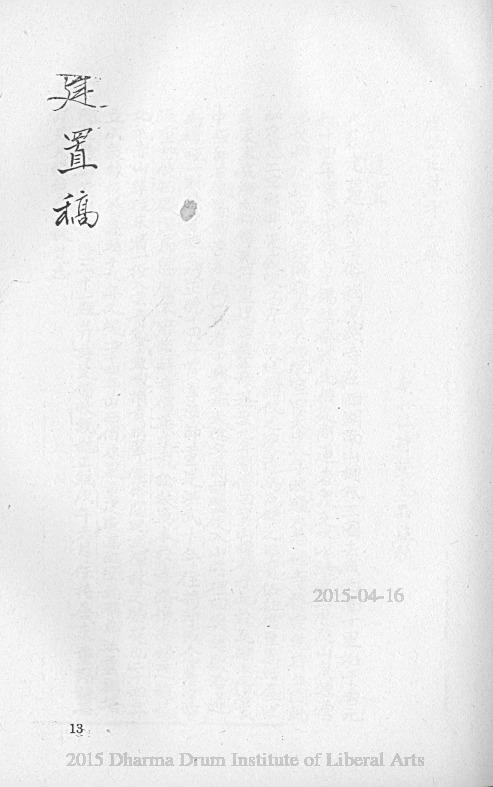 建置稿
2015-04-16
13
2015 Dharma Drum Institute of Liberal Arts